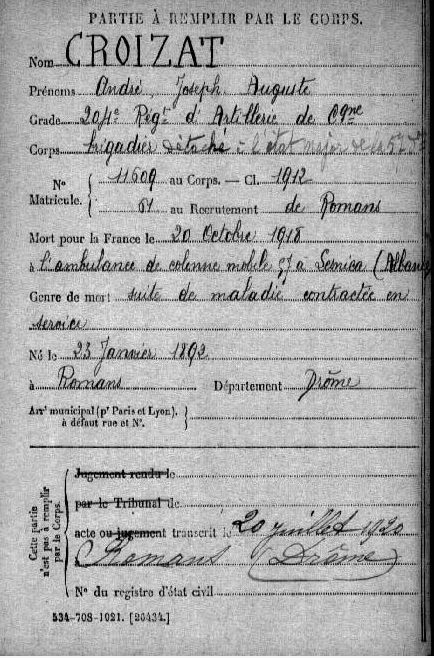 PARTIE À REMPLIR PAR LE CORPS.
Nom CROIZAT
Prénoms André, Joseph Auguste
Grade 204e Régt d'Artillerie de Cgne
Corps Brigadier Détaché à l'état major de la 57e Don
No Matricule. 11609 au Corps. — Cl. 1912
61 au Recrutement de Romans
Mort pour la France le 20 Octobre 1918
à l'ambulance de colonne mobile 57 à Lesnica (Albanie
Genre de mort suite de maladie contractée en
service
Né le 23 Janvier 1892
à Romans Département Drôme
Arrt municipal (pr Paris et Lyon), à défaut rue et No.
Cette partie n'est pas à remplir par le Corps.
Jugement rendu le
par le Tribunal de
acte ou jugement transcrit le 20 juillet 1920
à Romans (Drôme)
No du registre d'état civil
534-708-1021. [26434.]